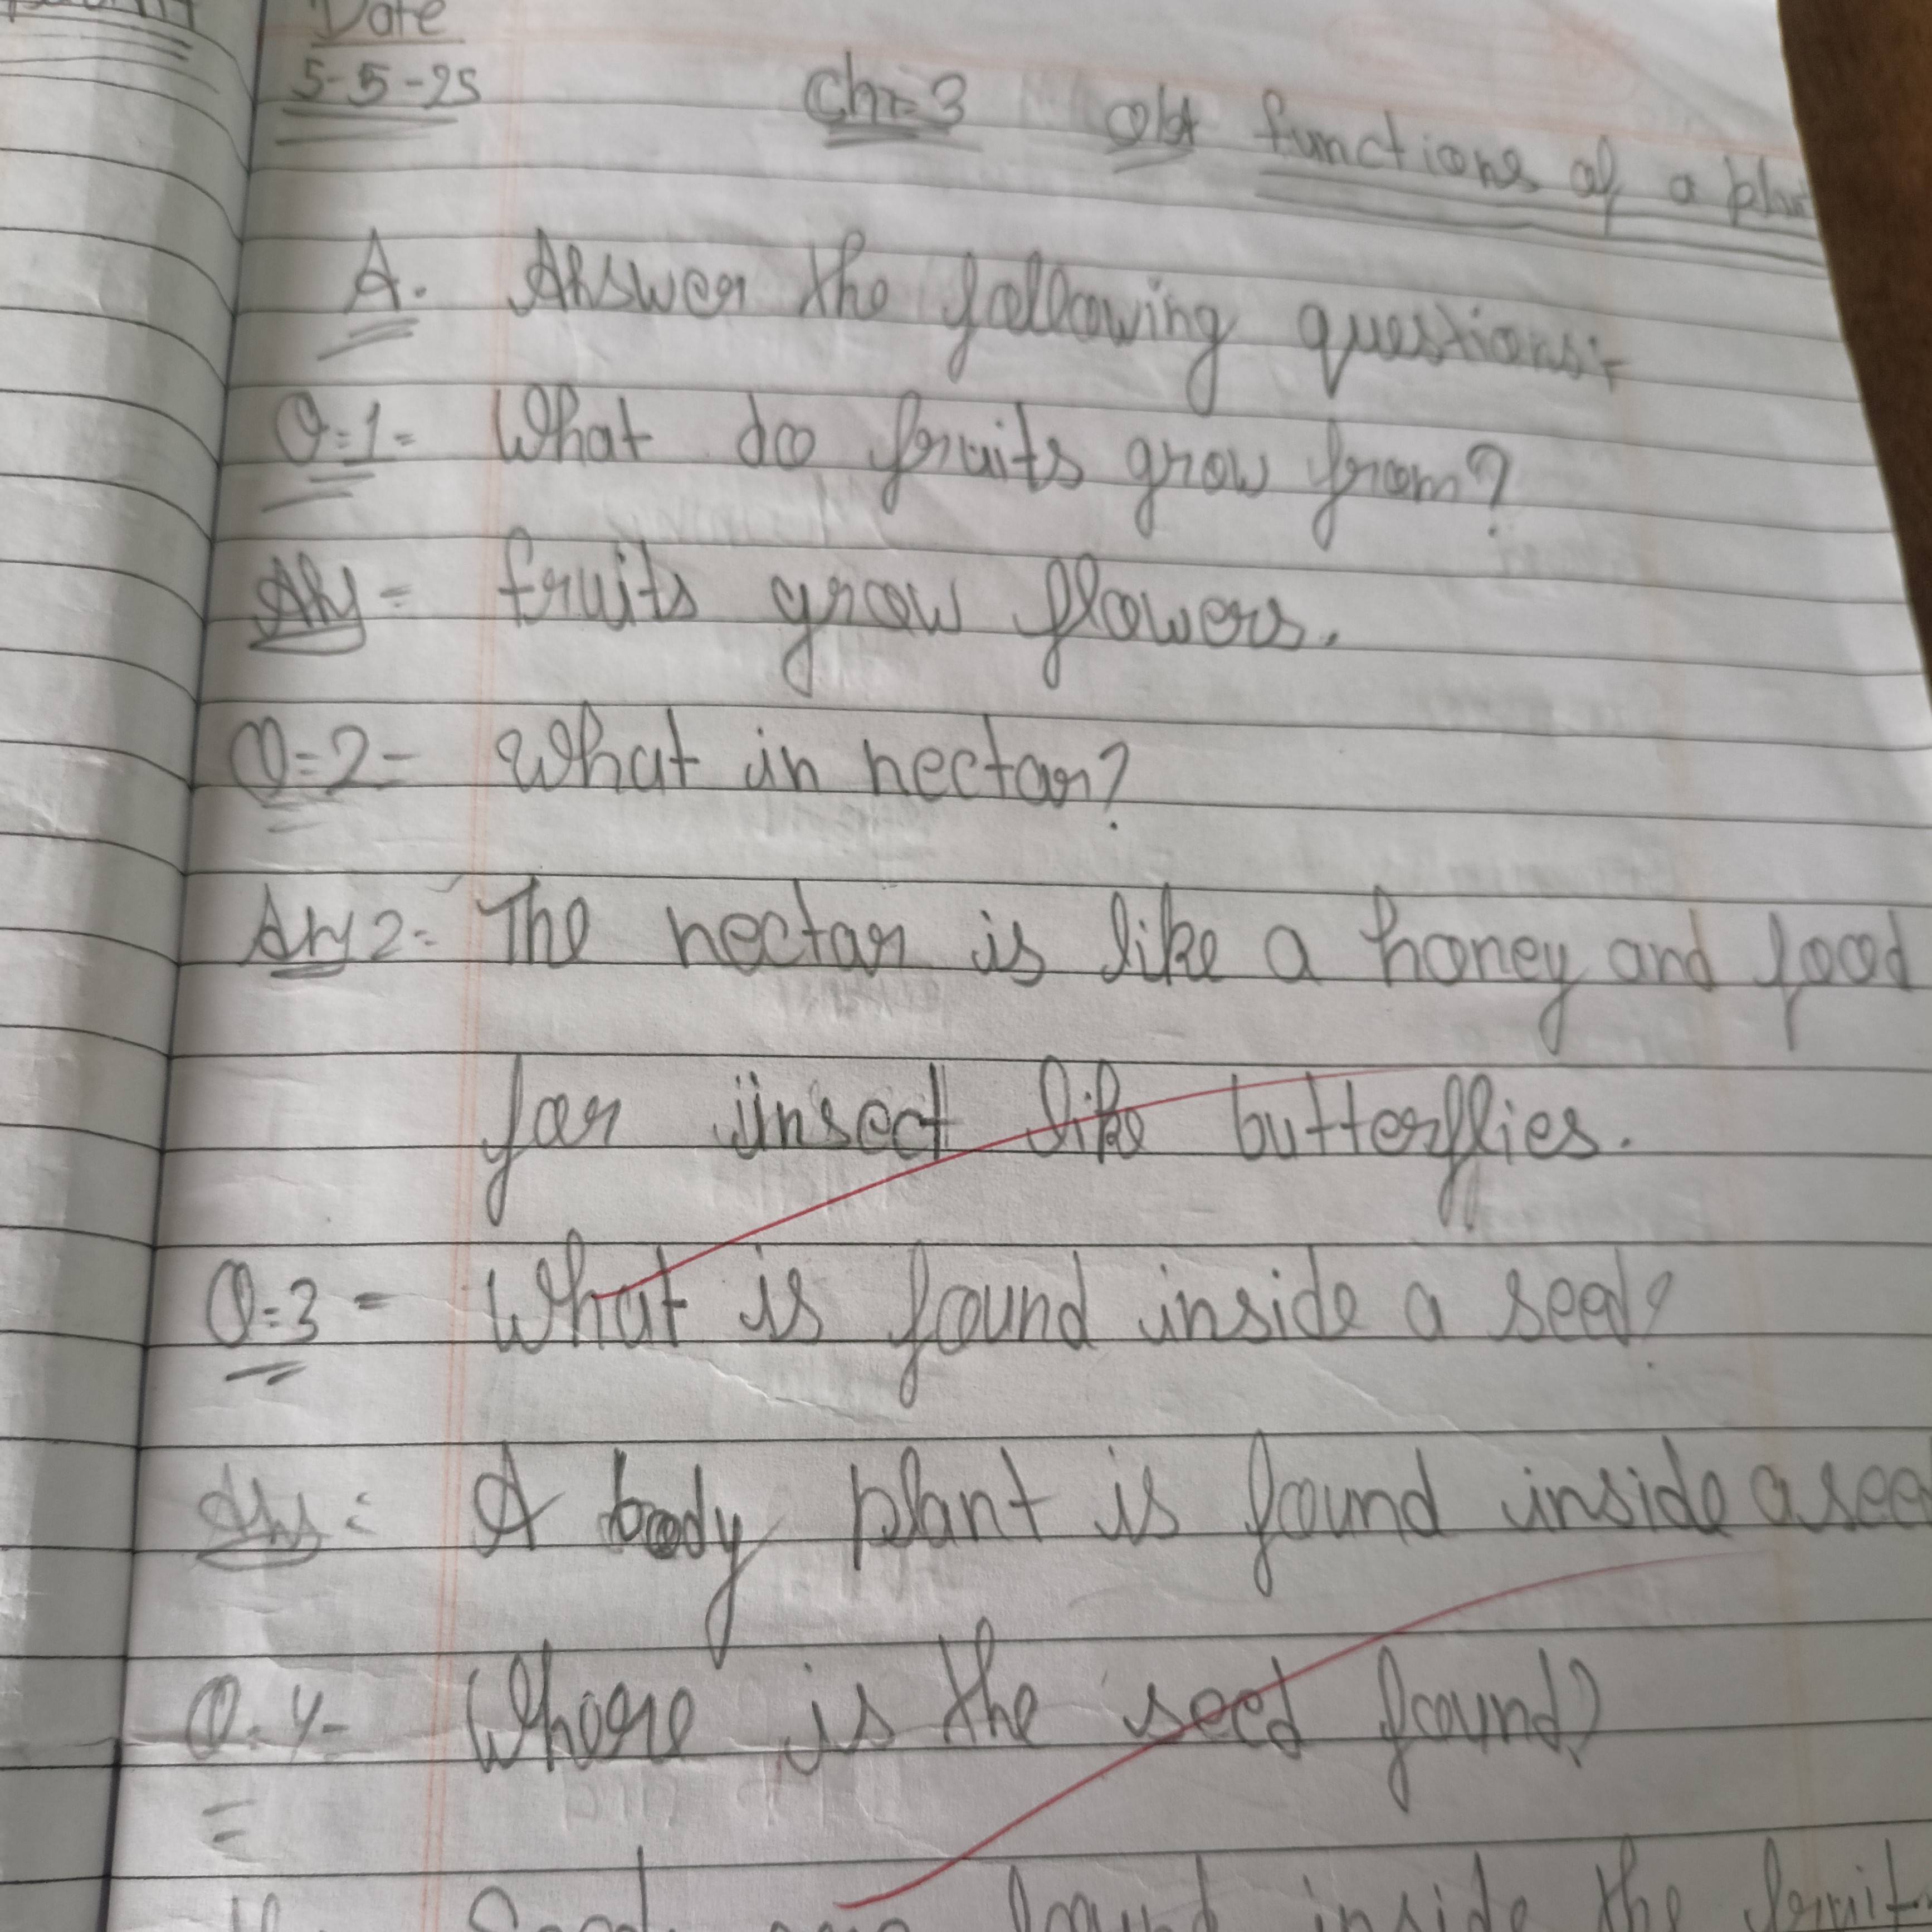 Date
5-5-25
Ch-3 functions of a plant
A. Answer the following questions:-
Q=1= What do fruits grow from?
Ans = fruits grow flowers.
Q=2- What in nectar?
Ans 2= The nectar is like a honey and food
for insect like butterflies.
Q=3- What is found inside a seed?
Ans: A body plant is found inside a seed
Q=4- Where is the seed found?
Seed are found inside the fruit